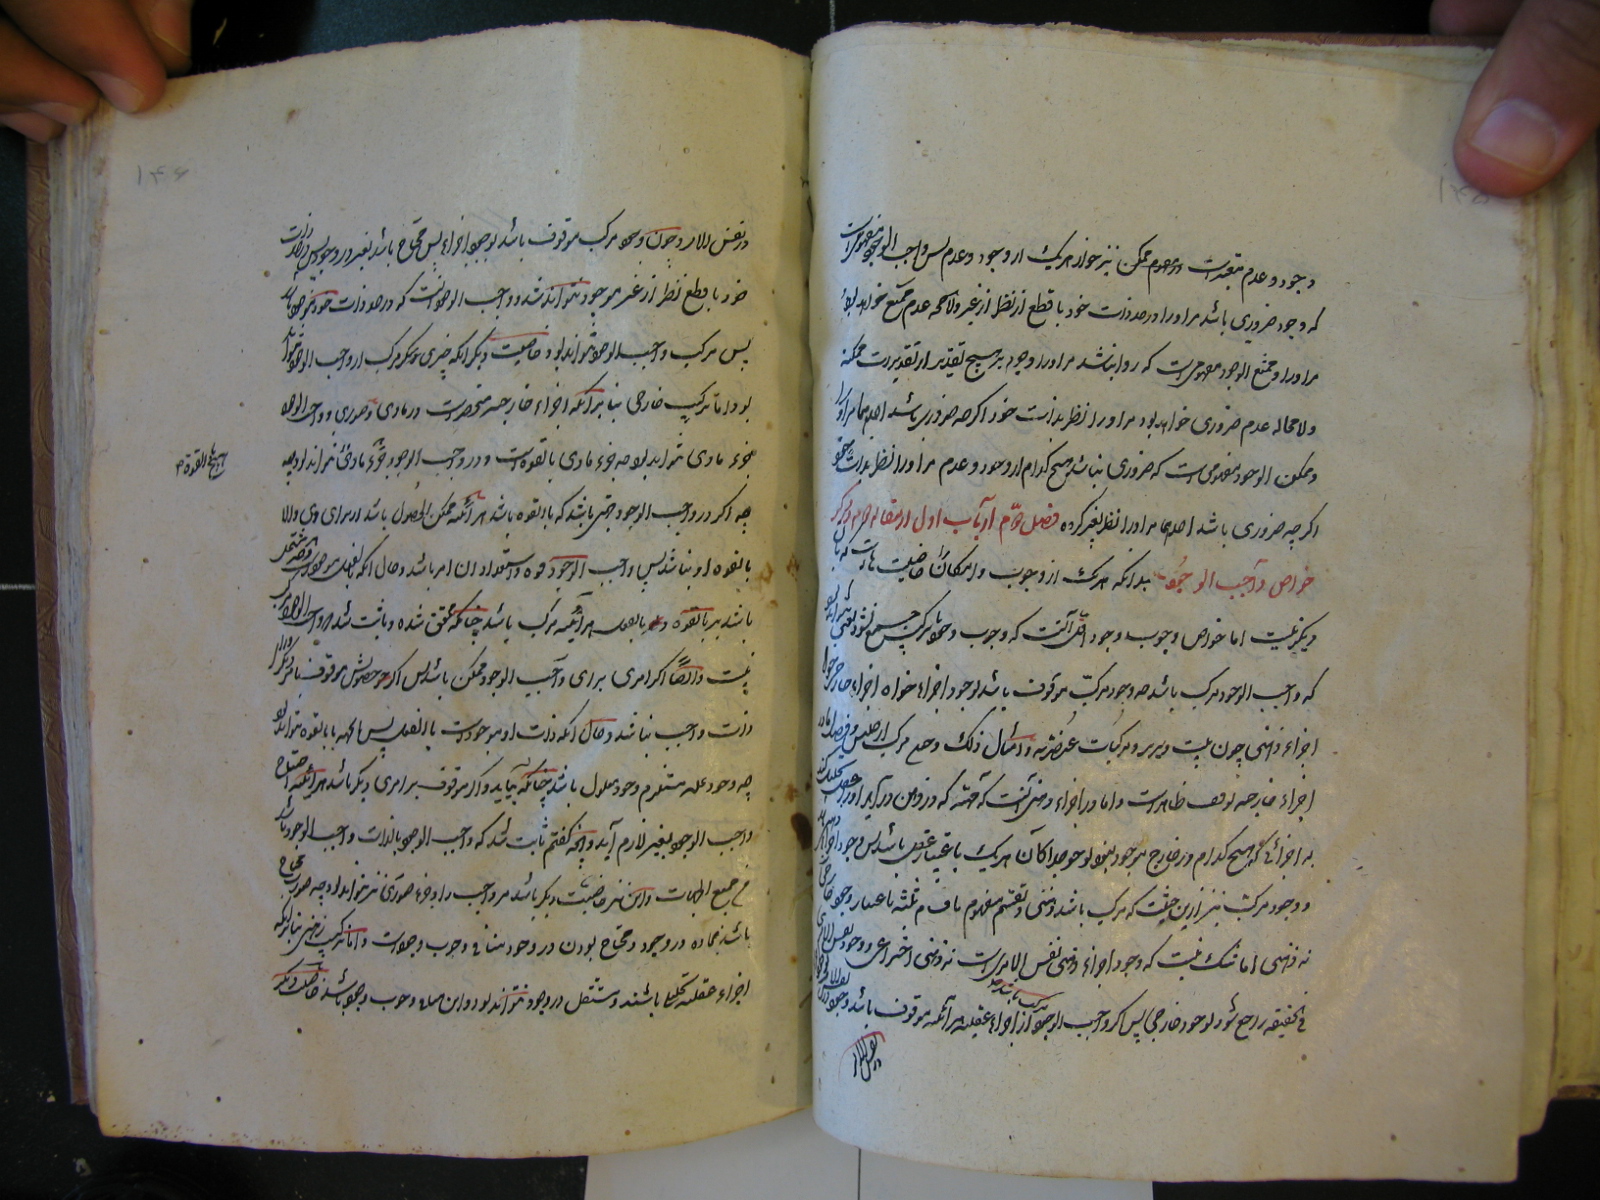 وجود و عدم مقیدست و معدوم ممکن نیز خواه هریک از وجود و عدم پس واجب الوجود مفهومی است
که وجود ضروری باشد مر او را در حد ذات خود با قطع از نظر از غیر و لامحه عدم ممتنع خواهد بود
مر او را و ممتنع الوجود مفهومی است که روا نباشد مر او را وجود بر هیچ تقدیر از تقدیرات ممکنه
و لامحاله عدم ضروری خواهد بود مر او را نظر بذات خود اگرچه ضروری باشد احدهما مر او را
و ممکن الوجود مفهومی است که ضروری نباشد هیچ کدام از وجود و عدم مر او را نظر بذات
اگرچه ضروری باشد احدهما مر او را نظر بغیر کرده فصل دوم از باب اول از مقاله در ذکر
خواص واجب الوجود بدانکه هریک از وجوب و امکان خاصیت هاست که
دیگر نیست اما خواص وجوب وجود اول آنست که وجوب وجود با ترکیب جمع نشود یعنی
که واجب الوجود مرکب باشد چه وجود مرکب موقوف باشد بوجود اجزاء خواه اجزاء خارجی
اجزاء ذهنی چون بیت و سریر و مرکبات عنصریه و امثال ذلک وجه مرکب از جنس و فصل اما در
اجزاء خارجیه توقف ظاهرست و اما در اجزاء ذهنی آنست که که در ذهن درآید او را عقل
به اجزائی که هیچ کدام در خارج موجود نبود بوجود جداگانه هریک باعتبار عقل باشد پس وجود اجزاء
و وجود مرکب نیز ازین حیثیت که مرکب باشد ذهنی و تقسیم مفهوم باقسام ثلثه باعتبار وجود خارجی
نه ذهنی اما شک نیست که وجود اجزاء ذهنی نفس الامری است نه ذهنی اختراعی و وجود نفس الامری
فی الحقیقه راجع شود بوجود خارجی پس اگر واجب الوجود از اجزاء عقلیه مرکب باشد هر آئینه موقوف باشد وجود
در نفس الامر
در نفس الامر و چون وجود مرکب موقوف باشد بوجود اجزاء پس محتاج باشد بغیر در وجود پس در حد ذات
خود با قطع نظر از غیر موجود نتواند شد و واجب الوجود آنست که در حد ذات خود موجود باشد
پس مرکب واجب الوجود نتواند بود و خاصیت دیگر آنکه چیزی دیگر مرکب از واجب الوجود نتواند
بود اما ترکیب خارجی بنا برآنکه اجزاء خارجیه منحصرست در مادی و صوری و واجب الوجود
جزء مادی نتواند بود چه جزء مادی بالقوه است و در واجب الوجود جزء مادی نتواند بود چه
هیچ جهة القوة
چه اگر در واجب الوجود جهتی باشد که بالقوه باشد هر آئینه ممکن الحصول باشد از برای وی و الا
بالقوه او نباشد پس واجب الوجود قوه و استعداد آن امر باشد و حال آنکه بالفعل موجودست پس مشتمل
باشد بر بالقوه و بالفعل هر آئینه مرکب باشد چنانکه محقق شده و ثابت شد که واجب الوجود مرکب
نیست و ایضا اگر امری برای واجب الوجود ممکن باشد پس اگر حصولش موقوف بامر دیگر
ذات واجب نباشد و حال آنکه ذات او موجودست بالفعل پس بالقوه نتواند بود
چه وجود علت مستلزم وجود معلول باشد چنانکه بیاید و اگر موقوف بر امری دیگر باشد هر آئینه احتیاج
واجب الوجود بغیر لازم آید و آنچه گفتیم ثابت شد که واجب الوجود بالذات واجب الوجود باشد
من جمیع الجهات و این نیز خاصیت دیگر باشد مر واجب را و جزء صوری نیز نتواند بود چه صورت محتاج
باشد بماده در وجود و محتاج بودن در وجود منافی وجوب وجودست و اما ترکیب ذهنی بنا برآنکه
اجزاء عقلیه باشند و مستقل در وجود نتواند بود و این منافی وجوب وجود باشد خاصیت دیگر